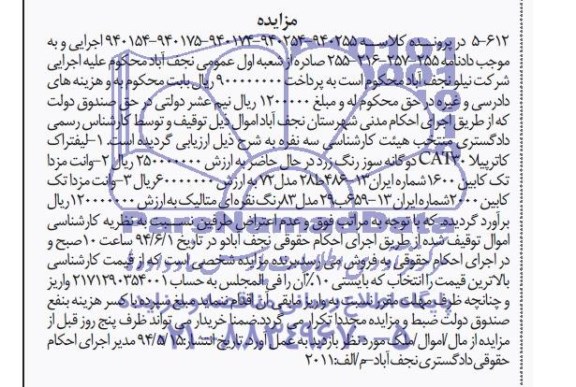 مزایده
۵-۶۱۲ در پرونده کلاسه ۹۴۰۲۵۵-۹۴۰۲۵۴-۹۴۰۱۷۴-۹۴۰۱۷۵-۹۴۰۱۵۴ اجرایی و به
موجب دادنامه ۲۵۵-۲۵۷-۲۱۶-۲۵۵ صادره از شعبه اول عمومی نجف آباد محکوم علیه اجرایی
شرکت نیلو نجف آباد محکوم است به پرداخت ۹۰۰۰۰۰۰۰ ریال بابت محکوم به و هزینه های
دادرسی و غیره در حق محکوم له و مبلغ ۱۲۰۰۰۰۰ ریال نیم عشر دولتی در حق صندوق دولت
که از طریق اجرای احکام مدنی شهرستان نجف آباد اموال ذیل توقیف و توسط کارشناس رسمی
دادگستری منتخب هیئت کارشناسی سه نفره به شرح ذیل ارزیابی گردیده است. ۱-لیفتراک
کاترپیلا CAT۳۰ دوگانه سوز رنگ زرد در حال حاضر به ارزش ۲۵۰۰۰۰۰۰۰ ریال ۲-وانت مزدا
تک کابین ۱۶۰۰ شماره ایران ۱۳-۴۸۶ط۲۸ مدل ۷۲ به ارزش ۶۰۰۰۰۰۰۰ ریال ۳-وانت مزدا تک
کابین ۲۰۰۰ شماره ایران ۱۳-۶۵۹ب۲۹ مدل ۸۳ رنگ نقره ای متالیک به ارزش ۱۲۰۰۰۰۰۰۰ ریال
برآورد گردیده که با توجه به مراتب فوق و عدم اعتراض طرفین نسبت به نظریه کارشناسی
اموال توقیف شده از طریق اجرای احکام حقوقی نجف آباد در تاریخ ۹۴/۶/۱ ساعت ۱۰ صبح و
در اجرای احکام حقوقی به فروش می رسد برنده مزایده شخصی است که از قیمت کارشناسی
بالاترین قیمت را انتخاب که بایستی ۱۰٪ آن را فی المجلس به حساب ۲۱۷۱۲۹۰۳۵۴۰۰۱ واریز
و چنانچه ظرف مهلت مقرر نسبت به واریز مابقی آن اقدام ننماید مبلغ سپرده با کسر هزینه بنفع
صندوق دولت ضبط و مزایده مجددا تکرار می گردد ضمنا خریدار می تواند ظرف پنج روز قبل از
مزایده از مال/اموال/ملک مورد نظر بازدید به عمل آورد. تاریخ انتشار: ۹۴/۵/۱۵ مدیر اجرای احکام
حقوقی دادگستری نجف آباد-م/الف:۲۰۱۱
ParsNamadData